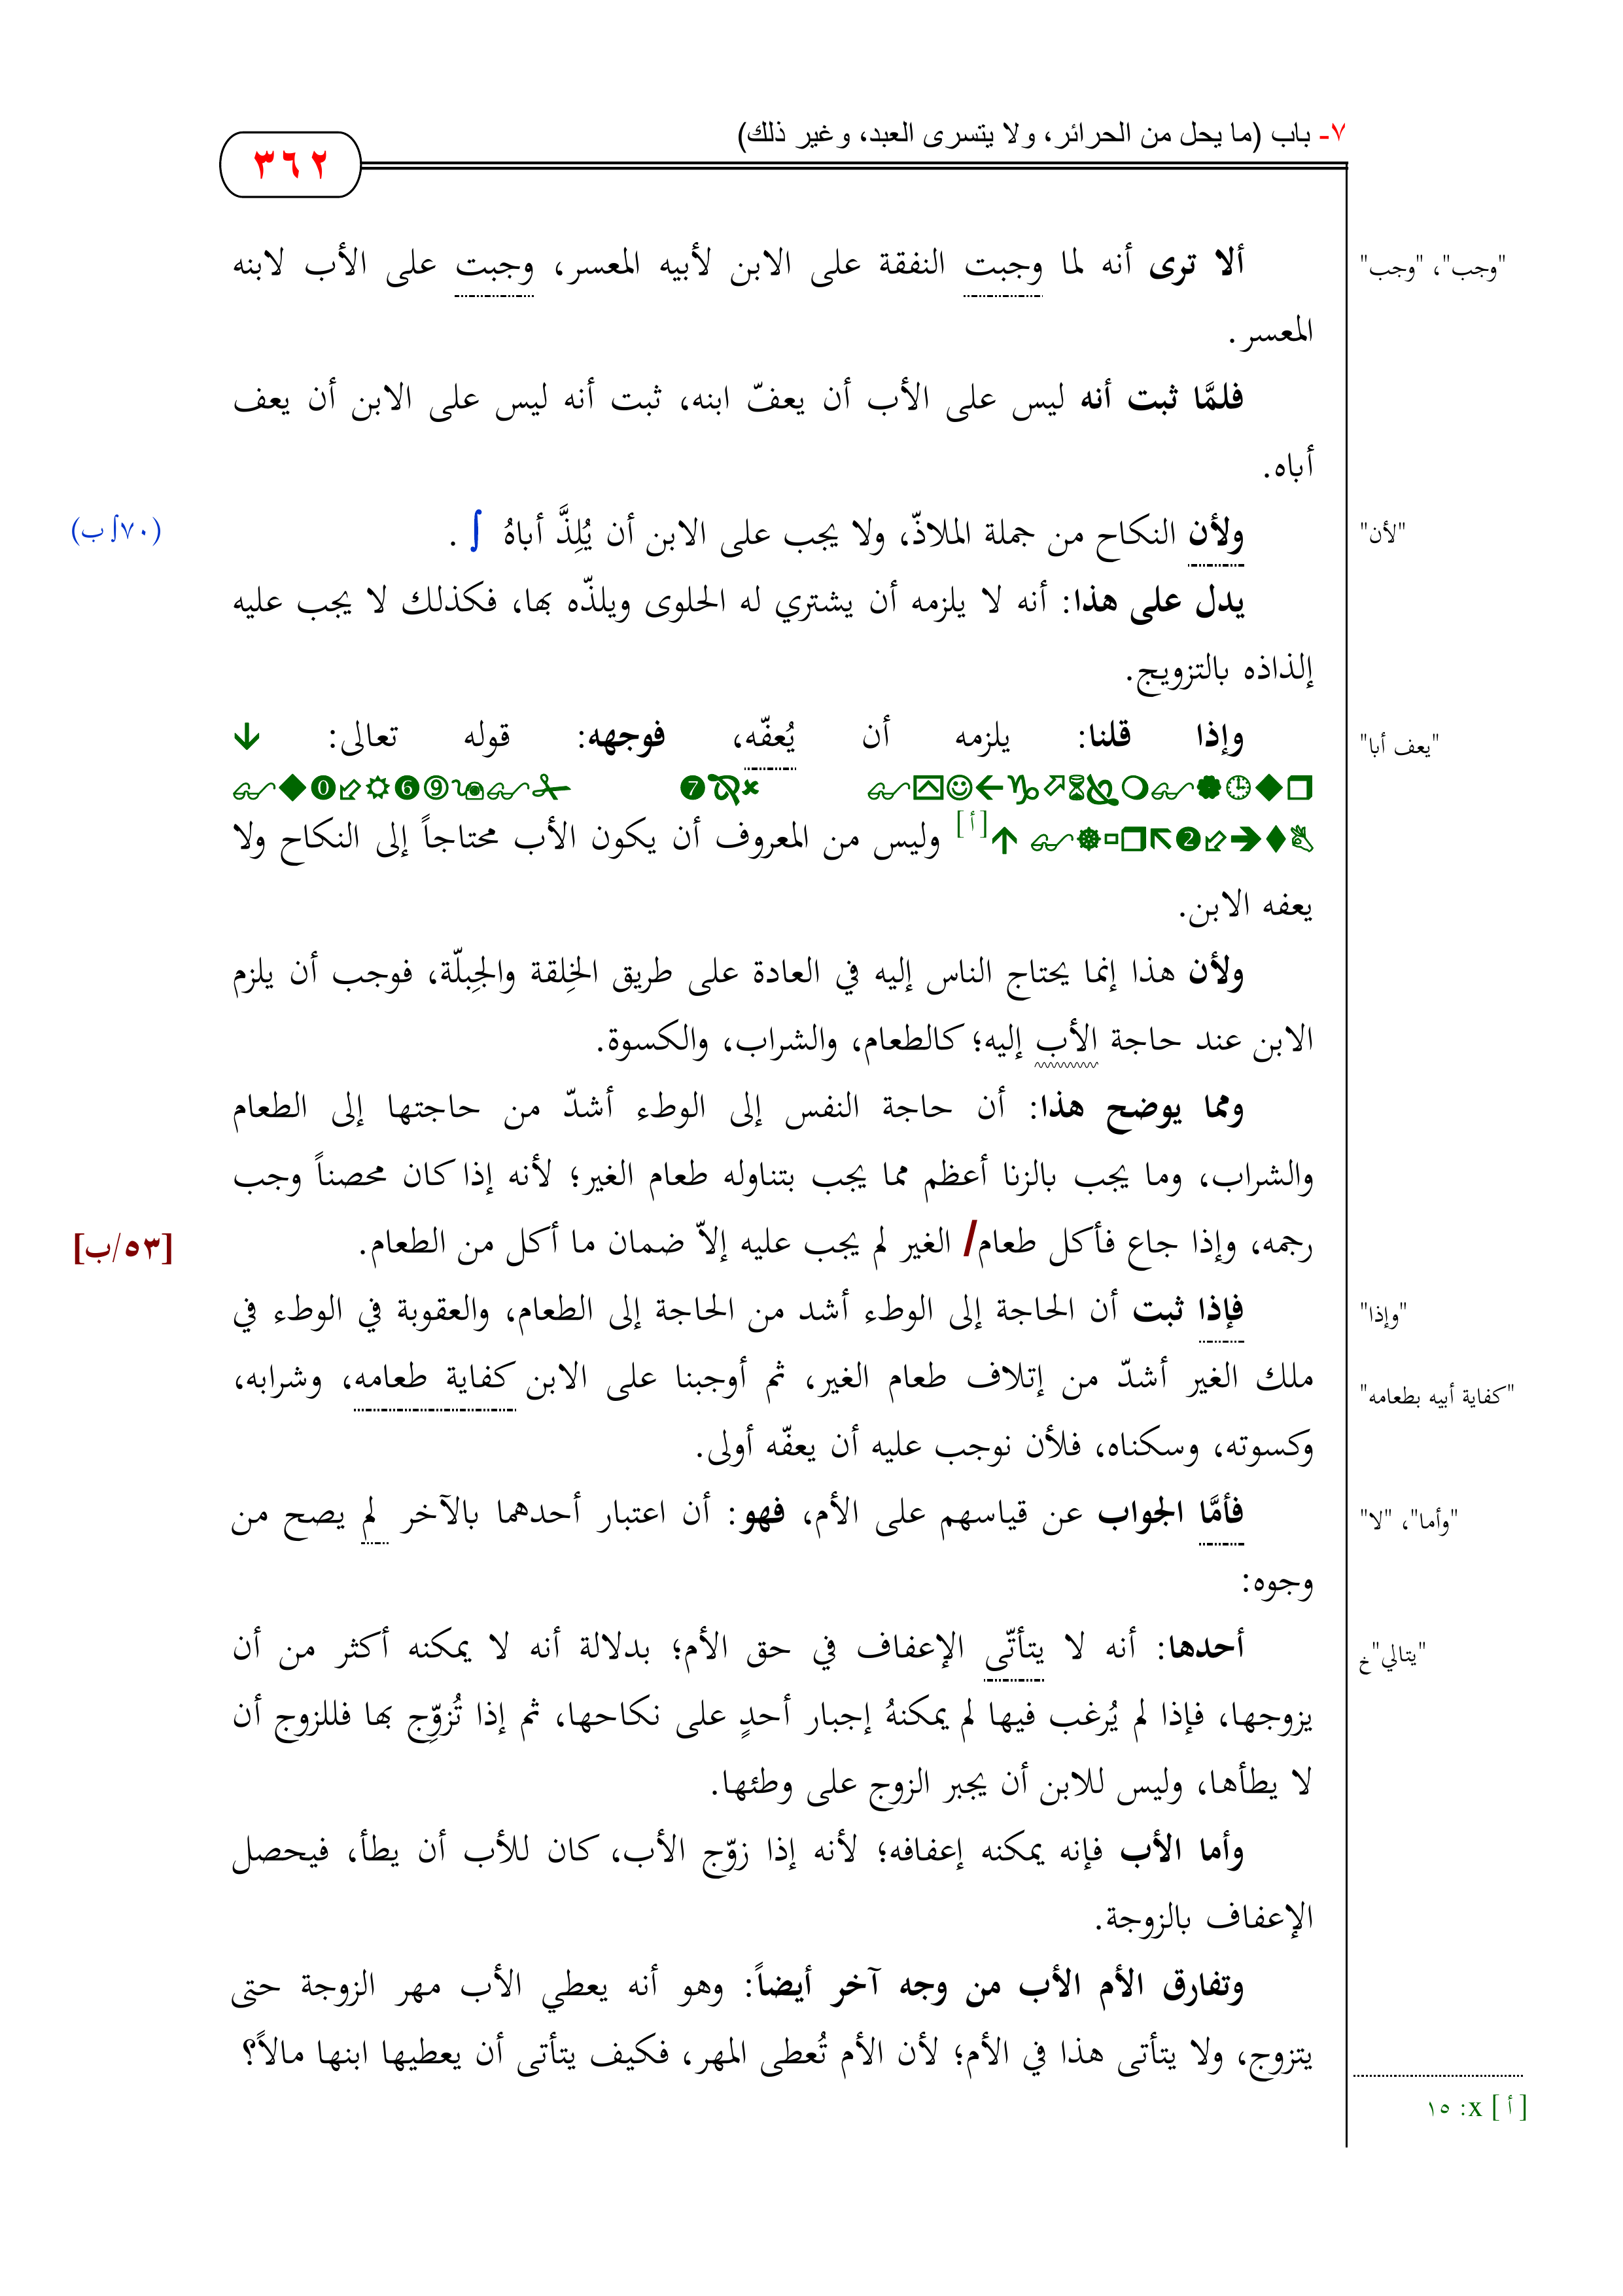 ٧- باب (ما يحل من الحرائر، ولا يتسرى العبد، وغير ذلك)
٣٦٢
ألا ترى أنه لما وجبت النفقة على الابن لأبيه المعسر، وجبت على الأب لابنه
"وجب"، "وجب"
المعسر.
فلمَّا ثبت أنه ليس على الأب أن يعفّ ابنه، ثبت أنه ليس على الابن أن يعف
أباه.
ولأن النكاح من جملة الملاذّ، ولا يجب على الابن أن يُلِذَّ أباهُ ∫ .
"لأن"
(٧٠∫ب)
يدل على هذا: أنه لا يلزمه أن يشتري له الحلوى ويلذّه بها، فكذلك لا يجب عليه
إلذاذه بالتزويج.
وإذا قلنا: يلزمه أن يُعفّه، فوجهه: قوله تعالى:
"يعف أبا"
[أ] وليس من المعروف أن يكون الأب محتاجاً إلى النكاح ولا
يعفه الابن.
ولأن هذا إنما يحتاج الناس إليه في العادة على طريق الخِلقة والجِبلّة، فوجب أن يلزم
الابن عند حاجة الأب إليه؛ كالطعام، والشراب، والكسوة.
ومما يوضح هذا: أن حاجة النفس إلى الوطء أشدّ من حاجتها إلى الطعام
والشراب، وما يجب بالزنا أعظم مما يجب بتناوله طعام الغير؛ لأنه إذا كان محصناً وجب
رجمه، وإذا جاع فأكل طعام/ الغير لم يجب عليه إلاّ ضمان ما أكل من الطعام.
[٥٣/ب]
فإذا ثبت أن الحاجة إلى الوطء أشد من الحاجة إلى الطعام، والعقوبة في الوطء في
"وإذا"
ملك الغير أشدّ من إتلاف طعام الغير، ثم أوجبنا على الابن كفاية طعامه، وشرابه،
"كفاية أبيه بطعامه"
وكسوته، وسكناه، فلأن نوجب عليه أن يعفّه أولى.
فأمَّا الجواب عن قياسهم على الأم، فهو: أن اعتبار أحدهما بالآخر لم يصح من
"وأما"، "لا"
وجوه:
أحدها: أنه لا يتأتّى الإعفاف في حق الأم؛ بدلالة أنه لا يمكنه أكثر من أن
"يتالي"خ
يزوجها، فإذا لم يُرغب فيها لم يمكنهُ إجبار أحدٍ على نكاحها، ثم إذا تُزوِّج بها فللزوج أن
لا يطأها، وليس للابن أن يجبر الزوج على وطئها.
وأما الأب فإنه يمكنه إعفافه؛ لأنه إذا زوّج الأب، كان للأب أن يطأ، فيحصل
الإعفاف بالزوجة.
وتفارق الأم الأب من وجه آخر أيضاً: وهو أنه يعطي الأب مهر الزوجة حتى
يتزوج، ولا يتأتى هذا في الأم؛ لأن الأم تُعطى المهر، فكيف يتأتى أن يعطيها ابنها مالاً؟
[أ] x: ١٥